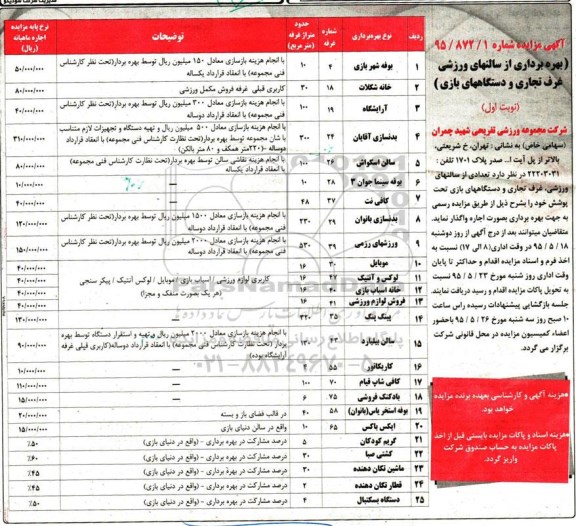 آگهی مزایده شماره ۱ / ۸۷۲ / ۹۵
( بهره برداری از سالنهای ورزشی
غرف تجاری و دستگاههای بازی )
(نوبت اول)
شرکت مجموعه ورزشی تفریحی شهید چمران
(سهامی خاص) به نشانی : تهران، خ شریعتی،
بالاتر از پل آیت ا.. صدر پلاک ۱۷۰۱ تلفن :
۲۲۲۰۳۰۳۱ در نظر دارد تعدادی از سالنهای
ورزشی، غرف تجاری و دستگاههای بازی تحت
پوشش خود را بشرح ذیل از طریق مزایده رسمی
به جهت بهره برداری بصورت اجاره واگذار نماید.
متقاضیان میتوانند بعد از درج آگهی از روز دوشنبه
۹۵ / ۵ / ۱۸ در وقت اداری (۸ الی ۱۷) نسبت به
اخذ فرم و اسناد مزایده اقدام و حداکثر تا پایان
وقت اداری روز شنبه مورخ ۹۵ / ۵ / ۲۳ نسبت
به تحویل پاکات مزایده اقدام و رسید دریافت نمایند.
جلسه بازگشایی پیشنهادات رسیده راس ساعت
۱۰ صبح روز سه شنبه مورخ ۹۵ / ۵ / ۲۶ باحضور
اعضاء کمیسیون مزایده در محل قانونی شرکت
برگزار می گردد.
*هزینه آگهی و کارشناسی بعهده برنده مزایده
خواهد بود.
*هزینه اسناد و پاکات مزایده بایستی قبل از اخذ
پاکات مزایده به حساب صندوق شرکت
واریز گردد.
ردیف نوع بهره‌برداری شماره غرفه حدود متراژ غرفه (متر مربع) توضیحات نرخ پایه مزایده اجاره ماهیانه (ریال)
۱ بوفه شهر بازی ۴ ۱۰ با انجام هزینه بازسازی معادل ۱۵۰ میلیون ریال توسط بهره بردار(تحت نظر کارشناس فنی مجموعه) با انعقاد قرارداد یکساله ۵۰/۰۰۰/۰۰۰
۲ خانه شکلات ۱۸ ۳۰ کاربری قبلی غرفه فروش مکمل ورزشی ۸۰/۰۰۰/۰۰۰
۳ آرایشگاه ۱۹ ۱۰۰ با انجام هزینه بازسازی معادل ۳۰۰ میلیون ریال توسط بهره بردار(تحت نظر کارشناس فنی مجموعه) با انعقاد قرارداد دوساله ۴۰/۰۰۰/۰۰۰
۴ بدنسازی آقایان ۲۴ ۳۰۰ با انجام هزینه بازسازی معادل ۵۰۰ میلیون ریال و تهیه دستگاه و تجهیزات لازم متناسب با شان مجموعه توسط بهره بردار(تحت نظارت کارشناس فنی مجموعه) با انعقاد قرارداد دوساله (۲۲۰متر همکف و ۸۰ متر بالکن) ۳۱۰/۰۰۰/۰۰۰
۵ سالن اسکواش ۲۶ ۱۰۰ با انجام هزینه نقاشی سالن توسط بهره بردار(تحت نظارت کارشناس فنی مجموعه) با انعقاد قرارداد یکساله ۸۰/۰۰۰/۰۰۰
۶ بوفه سینما جوان ۳ ۲۸ ۱۰ — ۱۰/۰۰۰/۰۰۰
۷ کافی نت ۳۷ ۴۸ — ۴۰/۰۰۰/۰۰۰
۸ بدنسازی بانوان ۲۹ ۲۳۰ با انجام هزینه بازسازی معادل ۱۵۰۰ میلیون ریال توسط بهره بردار(تحت نظر کارشناس فنی مجموعه) با انعقاد قرارداد دوساله ۱۲۰/۰۰۰/۰۰۰
۹ ورزشهای رزمی ۳۹ ۵۳۰ با انجام هزینه بازسازی معادل ۲۰۰۰ میلیون ریال توسط بهره بردار(تحت نظر کارشناس فنی مجموعه) با انعقاد قرارداد دوساله ۱۵۰/۰۰۰/۰۰۰
۱۰ موبایل ۳۰ ۱۶ ۴۰/۰۰۰/۰۰۰
۱۱ لوکس و آنتیک ۴۷ ۱۶ کاربری لوازم ورزشی / اسباب بازی / موبایل / لوکس آنتیک / پیکر سنجی ۴۰/۰۰۰/۰۰۰
۱۲ خانه اسباب بازی ۱۶ (هر یک بصورت منفک و مجزا) ۴۰/۰۰۰/۰۰۰
۱۳ فروش لوازم ورزشی ۴۱ ۱۶ ۴۰/۰۰۰/۰۰۰
۱۴ پینگ پنگ ۳۵ — ۱۳۰/۰۰۰/۰۰۰
۱۵ سالن بیلیارد با انجام هزینه بازسازی معادل ۲۰۰۰ میلیون ریال وتهیه و استقرار دستگاه توسط بهره بردار (تحت نظارت کارشناس فنی مجموعه) با انعقاد قرارداد دوساله(کاربری قبلی غرفه آرایشگاه بوده) ۹۰/۰۰۰/۰۰۰
۱۶ کاریکاتور ۵۵ ۴ — ۱۰/۰۰۰/۰۰۰
۱۷ کافی شاپ قیام ۷۰ ۱۰۰ — ۱۱۰/۰۰۰/۰۰۰
۱۸ بادکنک فروشی ۷۵ ۶ — ۱۵/۰۰۰/۰۰۰
۱۹ بوفه استخر یاس(بانوان) ۵۸ ۴۰ در قالب فضای باز و بسته ۲۰/۰۰۰/۰۰۰
۲۰ ایکس باکس ۶۵ ۱۰ واقع در سالن دنیای بازی ۱۵/۰۰۰/۰۰۰
۲۱ گریم کودکان ۵ درصد مشارکت در بهره برداری - (واقع در دنیای بازی) ۵۰٪
۲۲ کشتی صبا ۳۰ درصد مشارکت در بهره برداری - (واقع در دنیای بازی) ۶۰٪
۲۳ ماشین تکان دهنده ۳۰ درصد مشارکت در بهره برداری - (واقع در دنیای بازی) ۴۵٪
۲۴ قطار تکان دهنده ۲ درصد مشارکت در بهره برداری - (واقع در دنیای بازی) ۴۵٪
۲۵ دستگاه بسکتبال ۴ درصد مشارکت در بهره برداری - (واقع در دنیای بازی) ۵۰٪
۰۲۱-۸۸۳۴۹۶۷۰-۵